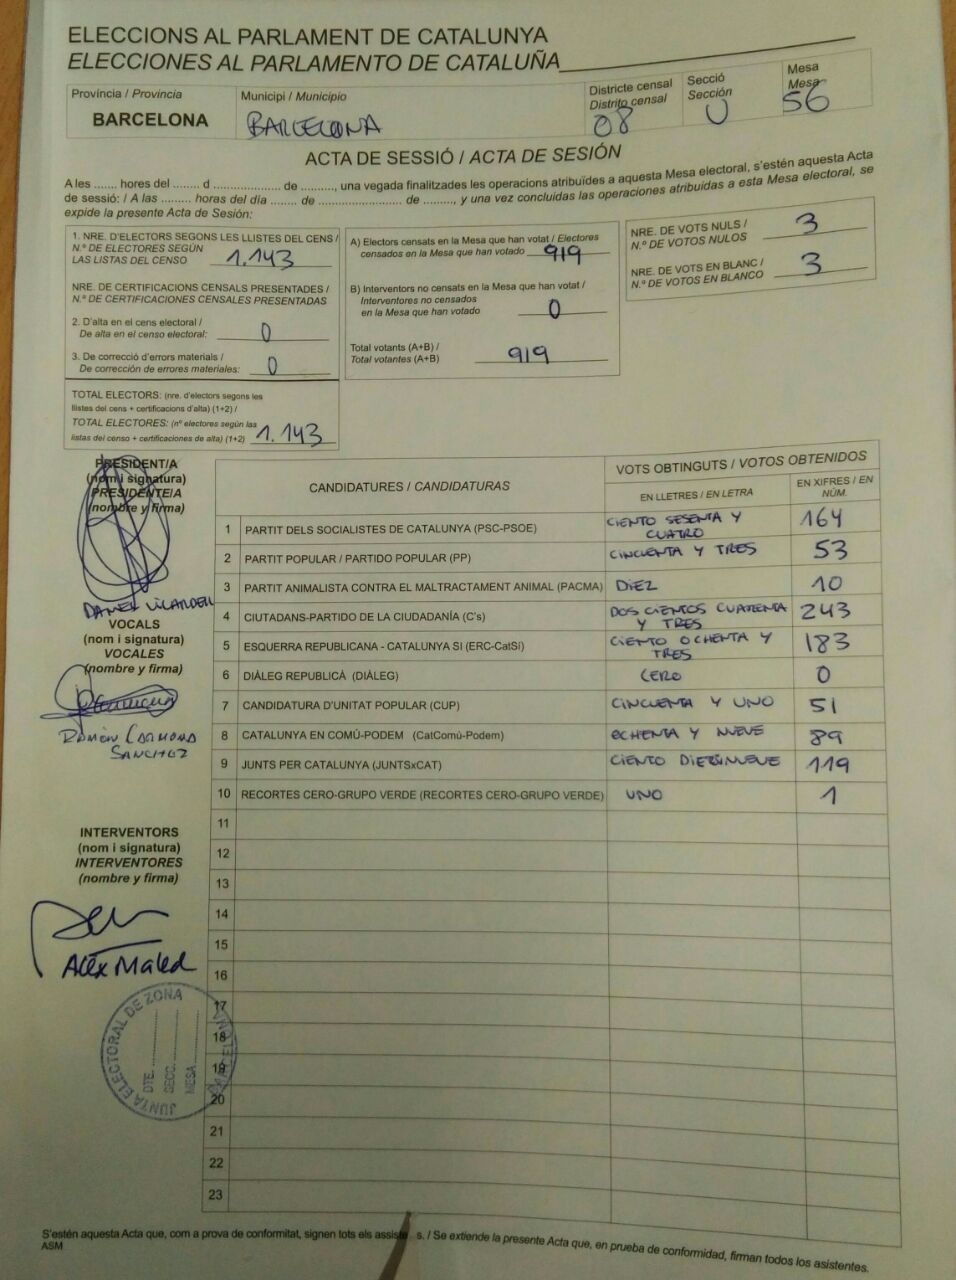 ELECCIONS AL PARLAMENT DE CATALUNYA
ELECCIONES AL PARLAMENTO DE CATALUÑA
Província / Provincia
BARCELONA
Municipi / Municipio
BARCELONA
Districte censal
Distrito censal
08
Secció
Sección
U
Mesa
Mesa
56
ACTA DE SESSIÓ / ACTA DE SESIÓN
A les ....... hores del ........ d .................... de .........., una vegada finalitzades les operacions atribuïdes a aquesta Mesa electoral, s'estén aquesta Acta
de sessió: / A las ......... horas del día ........ de ...................... de ........., y una vez concluidas las operaciones atribuidas a esta Mesa electoral, se
expide la presente Acta de Sesión:
1. NRE. D'ELECTORS SEGONS LES LLISTES DEL CENS /
N.º DE ELECTORES SEGÚN
LAS LISTAS DEL CENSO 1.143
NRE. DE CERTIFICACIONS CENSALS PRESENTADES /
N.º DE CERTIFICACIONES CENSALES PRESENTADAS
2. D'alta en el cens electoral /
De alta en el censo electoral: 0
3. De correcció d'errors materials /
De corrección de errores materiales: 0
TOTAL ELECTORS: (nre. d'electors segons les
llistes del cens + certificacions d'alta) (1+2) /
TOTAL ELECTORES: (nº electores según las
listas del censo + certificaciones de alta) (1+2) 1.143
A) Electors censats en la Mesa que han votat / Electores
censados en la Mesa que han votado 919
B) Interventors no censats en la Mesa que han votat /
Interventores no censados
en la Mesa que han votado 0
Total votants (A+B) /
Total votantes (A+B) 919
NRE. DE VOTS NULS /
N.º DE VOTOS NULOS 3
NRE. DE VOTS EN BLANC /
N.º DE VOTOS EN BLANCO 3
PRESIDENT/A
(nom i signatura)
PRESIDENTE/A
(nombre y firma)
DANIEL VILARDELL
VOCALS
(nom i signatura)
VOCALES
(nombre y firma)
RAMÓN CARMONA
SANCHEZ
INTERVENTORS
(nom i signatura)
INTERVENTORES
(nombre y firma)
Alex Maled
JUNTA ELECTORAL DE ZONA
DTE. ..........
SECC. ..........
MESA ..........
CANDIDATURES / CANDIDATURAS
VOTS OBTINGUTS / VOTOS OBTENIDOS
EN LLETRES / EN LETRA
EN XIFRES / EN
NÚM.
1 PARTIT DELS SOCIALISTES DE CATALUNYA (PSC-PSOE) CIENTO SESENTA Y CUATRO 164
2 PARTIT POPULAR / PARTIDO POPULAR (PP) CINCUENTA Y TRES 53
3 PARTIT ANIMALISTA CONTRA EL MALTRACTAMENT ANIMAL (PACMA) DIEZ 10
4 CIUTADANS-PARTIDO DE LA CIUDADANÍA (C's) DOS CIENTOS CUARENTA Y TRES 243
5 ESQUERRA REPUBLICANA - CATALUNYA SI (ERC-CatSí) CIENTO OCHENTA Y TRES 183
6 DIÀLEG REPUBLICÀ (DIÀLEG) CERO 0
7 CANDIDATURA D'UNITAT POPULAR (CUP) CINCUENTA Y UNO 51
8 CATALUNYA EN COMÚ-PODEM (CatComú-Podem) OCHENTA Y NUEVE 89
9 JUNTS PER CATALUNYA (JUNTSxCAT) CIENTO DIEZINUEVE 119
10 RECORTES CERO-GRUPO VERDE (RECORTES CERO-GRUPO VERDE) UNO 1
11
12
13
14
15
16
17
18
19
20
21
22
23
S'estén aquesta Acta que, com a prova de conformitat, signen tots els s. / Se extiende la presente Acta que, en prueba de conformidad, firman todos los asistentes.
ASM